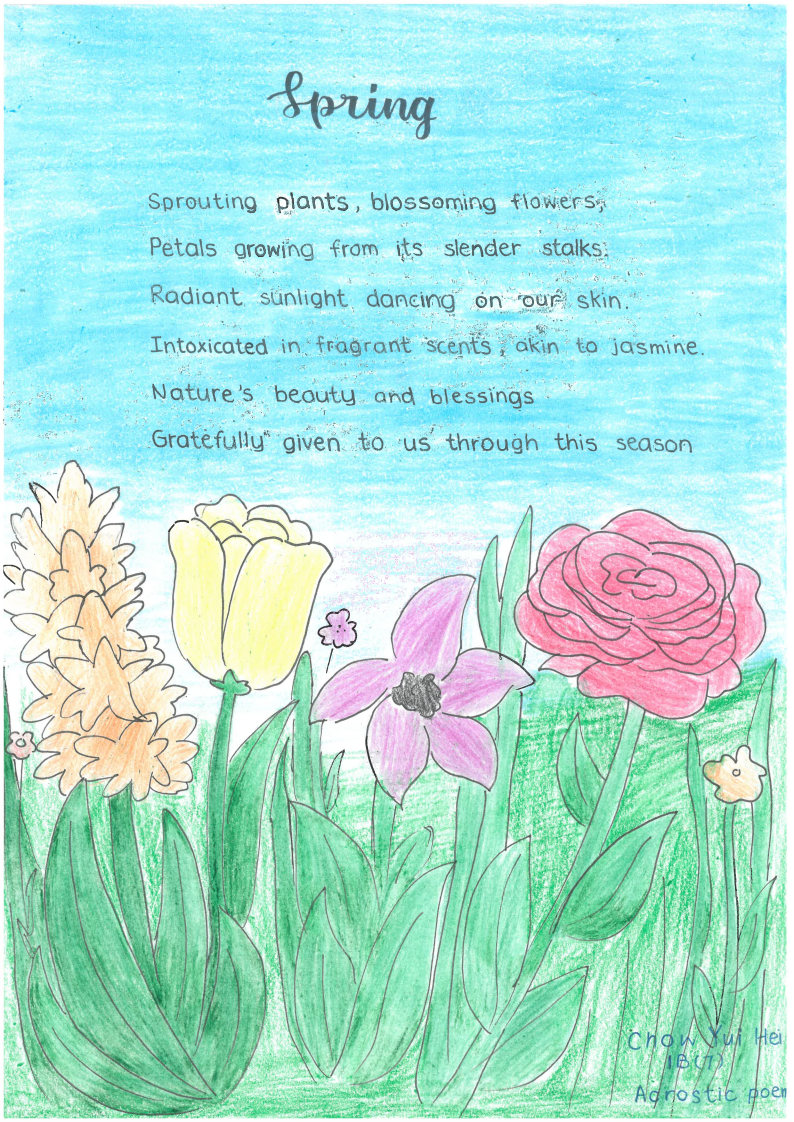 Spring
Sprouting plants, blossoming flowers,
Petals growing from its slender stalks.
Radiant sunlight dancing on our skin.
Intoxicated in fragrant scents, akin to jasmine.
Nature's beauty and blessings
Gratefully given to us through this season
Chow Yui Hei
1B(7)
Acrostic poem